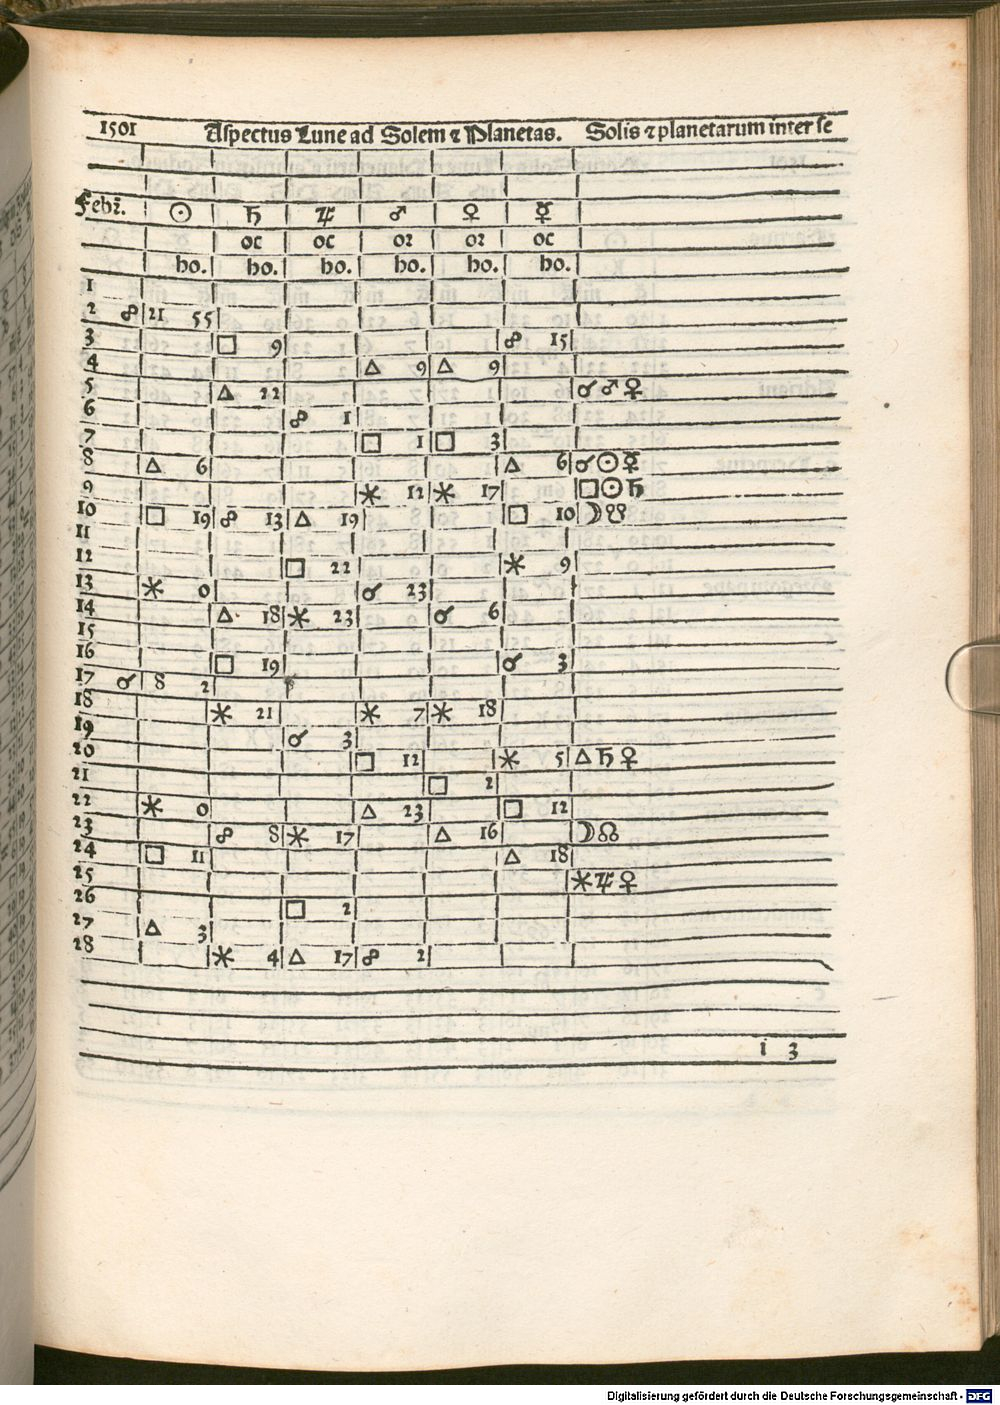 1501 Aspectus Lune ad Solem ⁊ Planetas. Solis ⁊ planetarum inter se
Febr. ☉ ♄ ♃ ♂ ♀ ☿
oc oc or or oc
ho. ho. ho. ho. ho. ho.
1
2 ☍ 21 55
3 □ 9 ☍ 15
4 △ 9 △ 9
5 △ 22 ☌ ♂ ♀
6 ☍ 1
7 □ 1 □ 3
8 △ 6 △ 6 ☌ ☉ ☿
9 ⚹ 12 ⚹ 17 □ ☉ ♄
10 □ 19 ☍ 13 △ 19 □ 10 ☽ ☋
11
12 □ 22 ⚹ 9
13 ⚹ 0 ☌ 23
14 △ 18 ⚹ 23 ☌ 6
15
16 □ 19 ☌ 3
17 ☌ 8 2
18 ⚹ 21 ⚹ 7 ⚹ 18
19 ☌ 3
20 □ 12 ⚹ 5 △ ♄ ♀
21 □ 2
22 ⚹ 0 △ 23 □ 12
23 ☍ 8 ⚹ 17 △ 16 ☽ ☊
24 □ 11 △ 18
25 ⚹ ♃ ♀
26 □ 2
27 △ 3
28 ⚹ 4 △ 17 ☍ 2
i 3
Digitalisierung gefördert durch die Deutsche Forschungsgemeinschaft - DFG